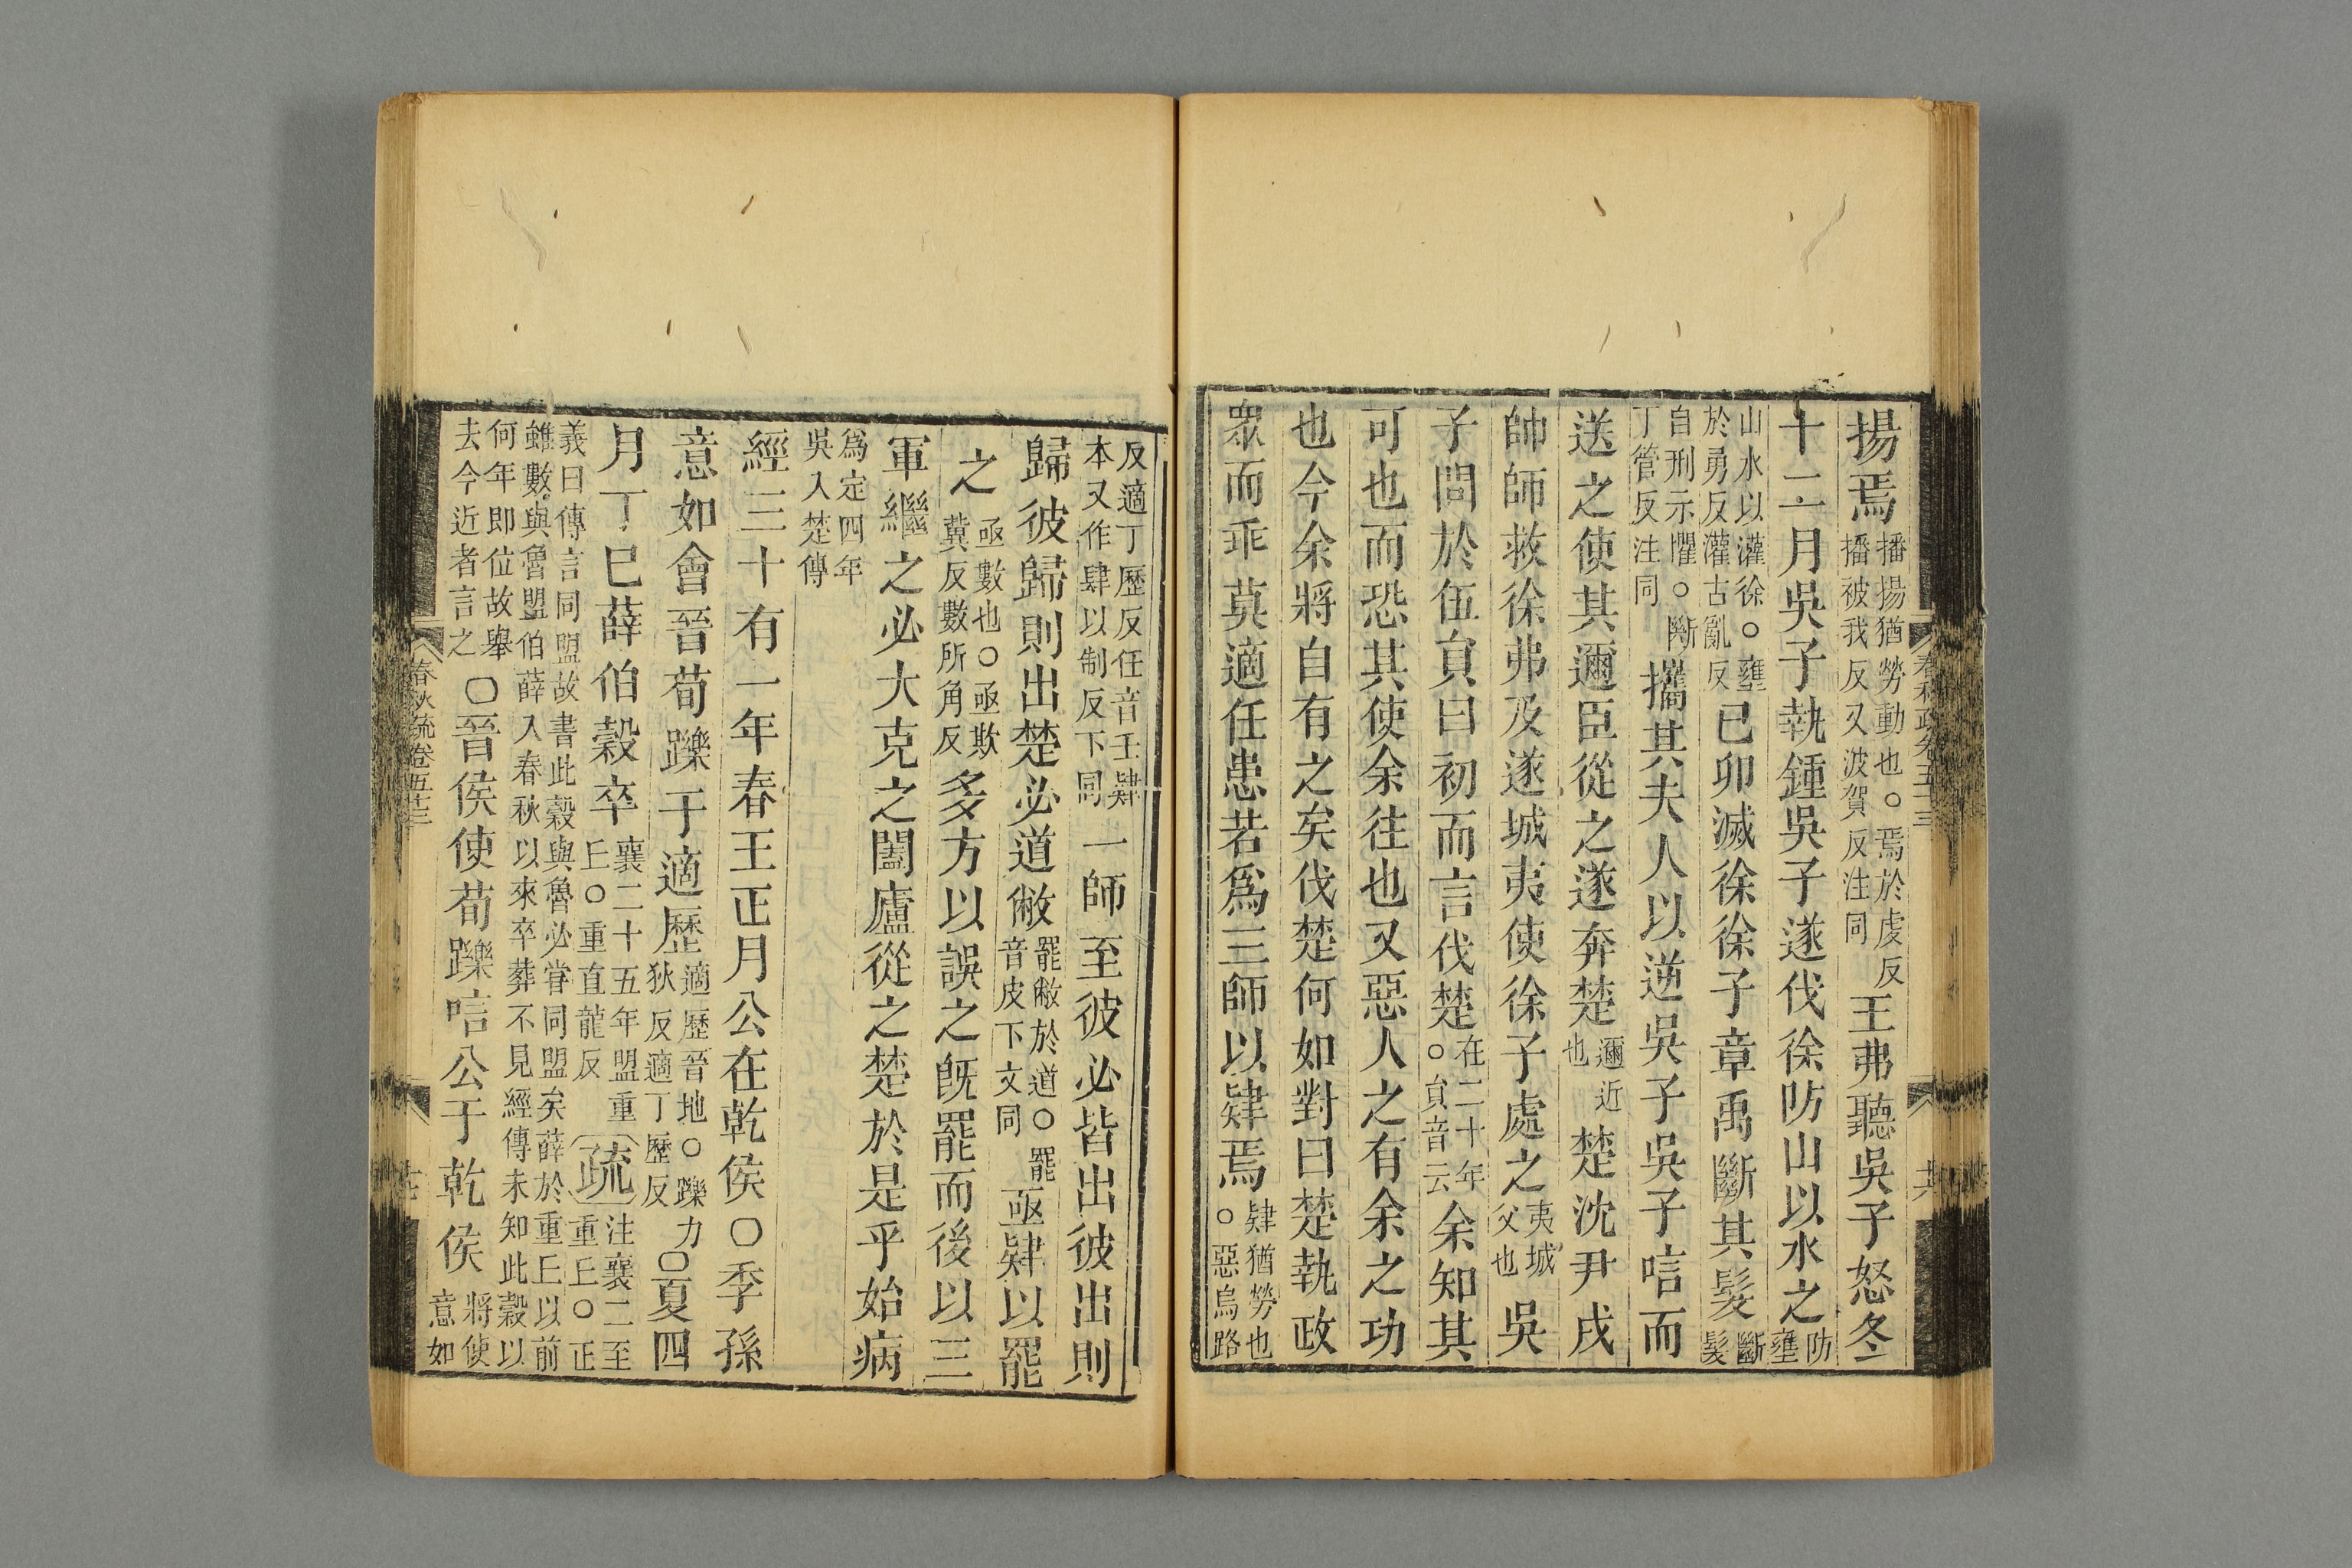 揚焉播揚猶勞動也○焉於虔反播被我反又波賀反注同王弗聽吳子怒冬
十二月吳子執鍾吾子遂伐徐防山以水之防壅
山水以灌徐○壅於勇反灌古亂反己卯滅徐徐子章禹斷其髮斷髮
自刑示懼○斷丁管反注同攜其夫人以逆吳子吳子唁而
送之使其邇臣從之遂奔楚邇近也楚沈尹戌
帥師救徐弗及遂城夷使徐子處之夷城父也吳
子問於伍員曰初而言伐楚在二十年○員音云余知其
可也而恐其使余往也又惡人之有余之功
也今余將自有之矣伐楚何如對曰楚執政
眾而乖莫適任患若為三師以肄焉肄猶勞也○惡烏路
反適丁歷反任音壬肄本又作肆以制反下同一師至彼必皆出彼出則
歸彼歸則出楚必道敝罷敝於道○罷音皮下文同亟肄以罷
之亟數也○亟欺冀反數所角反多方以誤之既罷而後以三
軍繼之必大克之闔廬從之楚於是乎始病
為定四年吳入楚傳
經三十有一年春王正月公在乾侯○季孫
意如會晉荀躒于適歷適歷晉地○躒力狄反適丁歷反○夏四
月丁巳薛伯穀卒襄二十五年盟重丘○重直龍反疏注襄二至重丘○正
義曰傳言同盟故書此穀與魯必嘗同盟矣薛於重丘以前雖數與魯盟伯薛入春秋以來卒葬不見經傳未知此穀以
何年即位故舉去今近者言之○晉侯使荀躒唁公于乾侯將使意如
春秋疏卷五十三